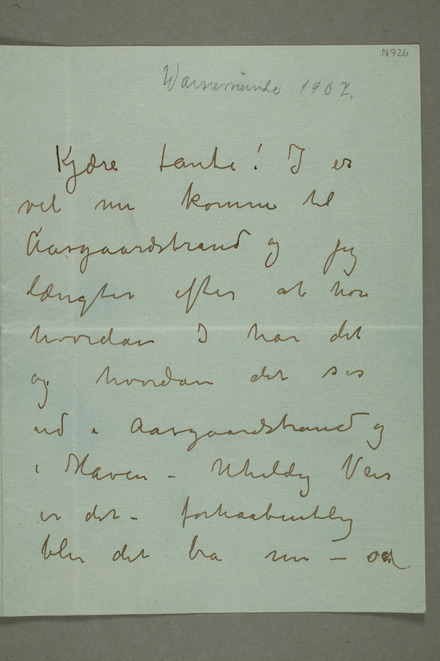 N 926
Warnemünde 1907.
Kjære tante! I er
vel nu komne til
Aasgaardstrand og jeg
længter efter at høre
hvordan I har det
og hvordan det ser
ud i Aasgaardstrand og
i Haven – Uheldig Veir
er det – forhaabentlig
blir det bra nu –